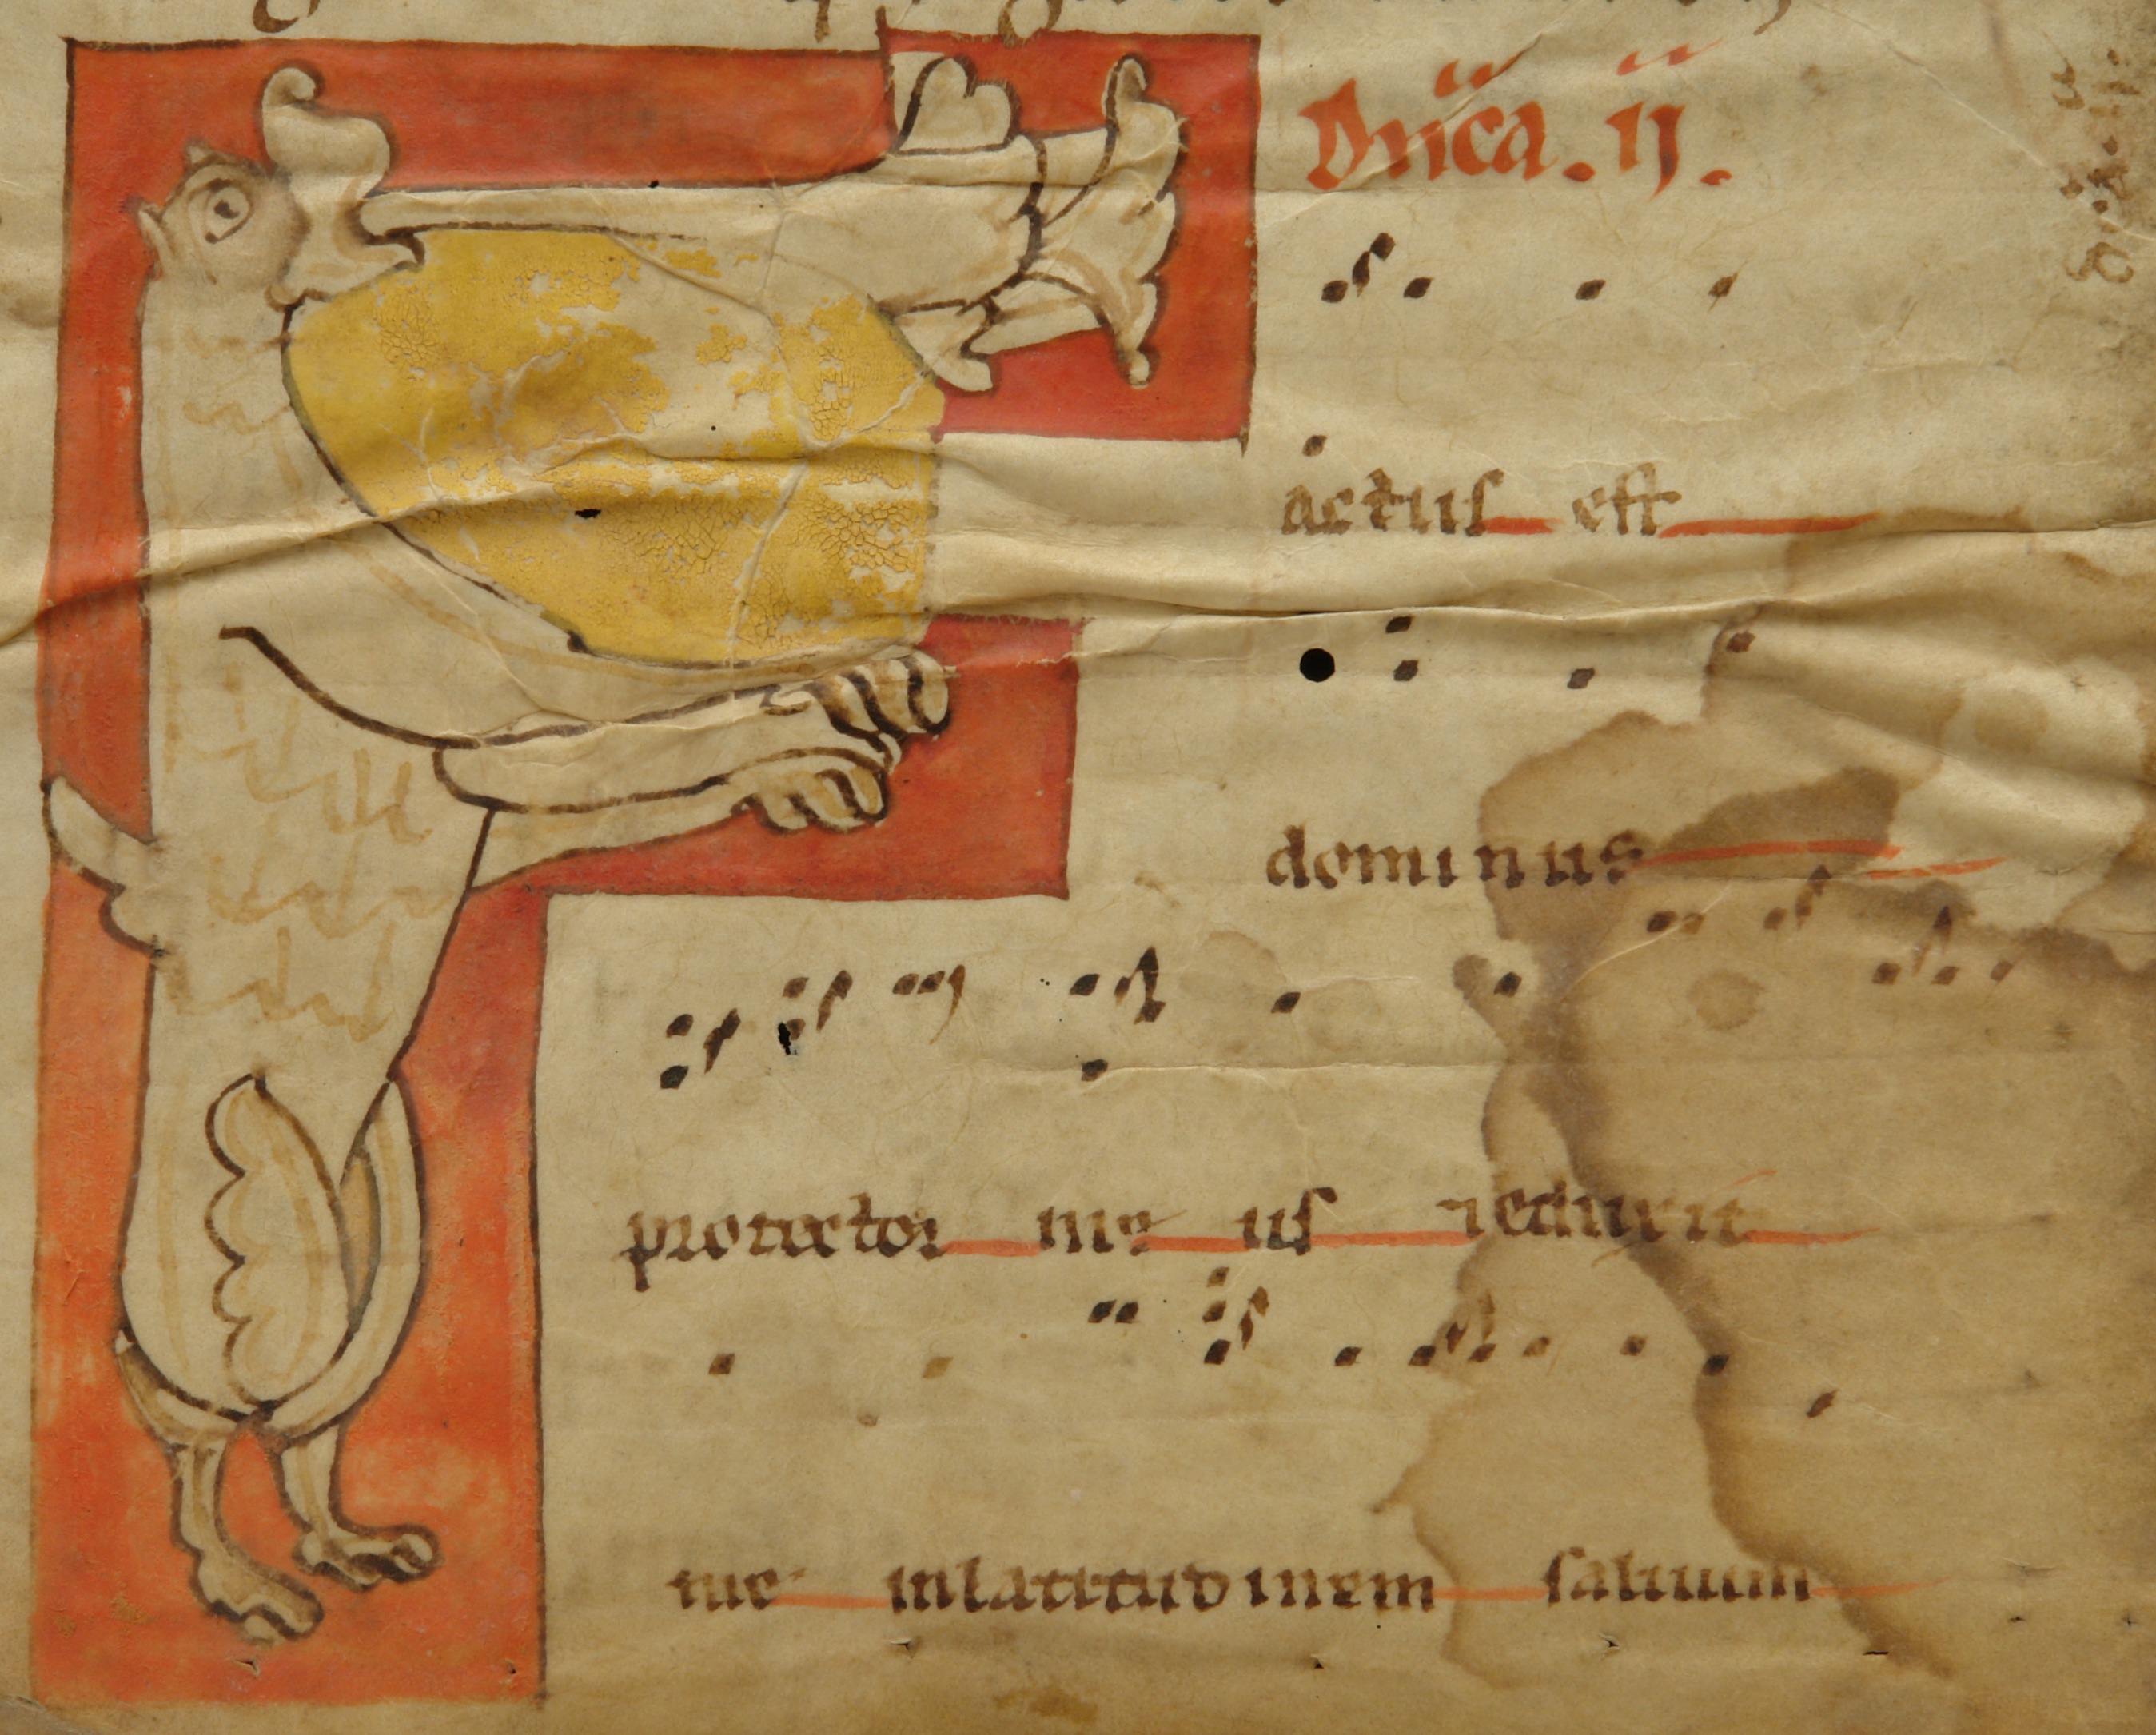 Dnica . ij .
F actus est
dominus
protector me us & eduxit
me inlatitudinem saluum